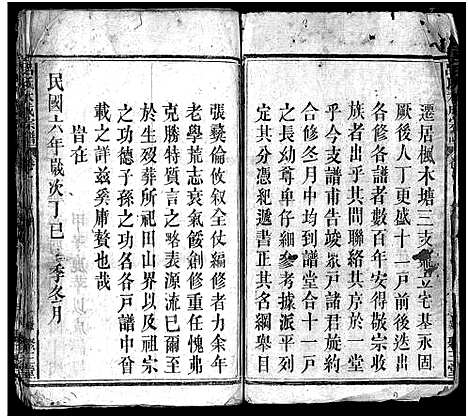 遷居楓木塘三支立宅基永固
厥後人丁更盛十一戶前後迭出
各修各譜者數百年安得敬宗收
族者出乎其間聯絡其序於一堂
乎今支譜甫告竣眾戶諸君旋約
合修冬月中均到譜堂合十一戶
之長幼尊卑仔細參考據派平列
各分慮紀遞書正其名綱舉目
張彝倫攸敘全仗編修者力余年
老學荒志衰氣餒創修重任愧弗
克勝特質言之略表源流已爾至
於生殁葬所祀田山界以及祖宗
之功德子孫之功名各戶譜中曾
載之詳茲奚庸贅也哉
皆在
民國六年歲次丁巳季冬月